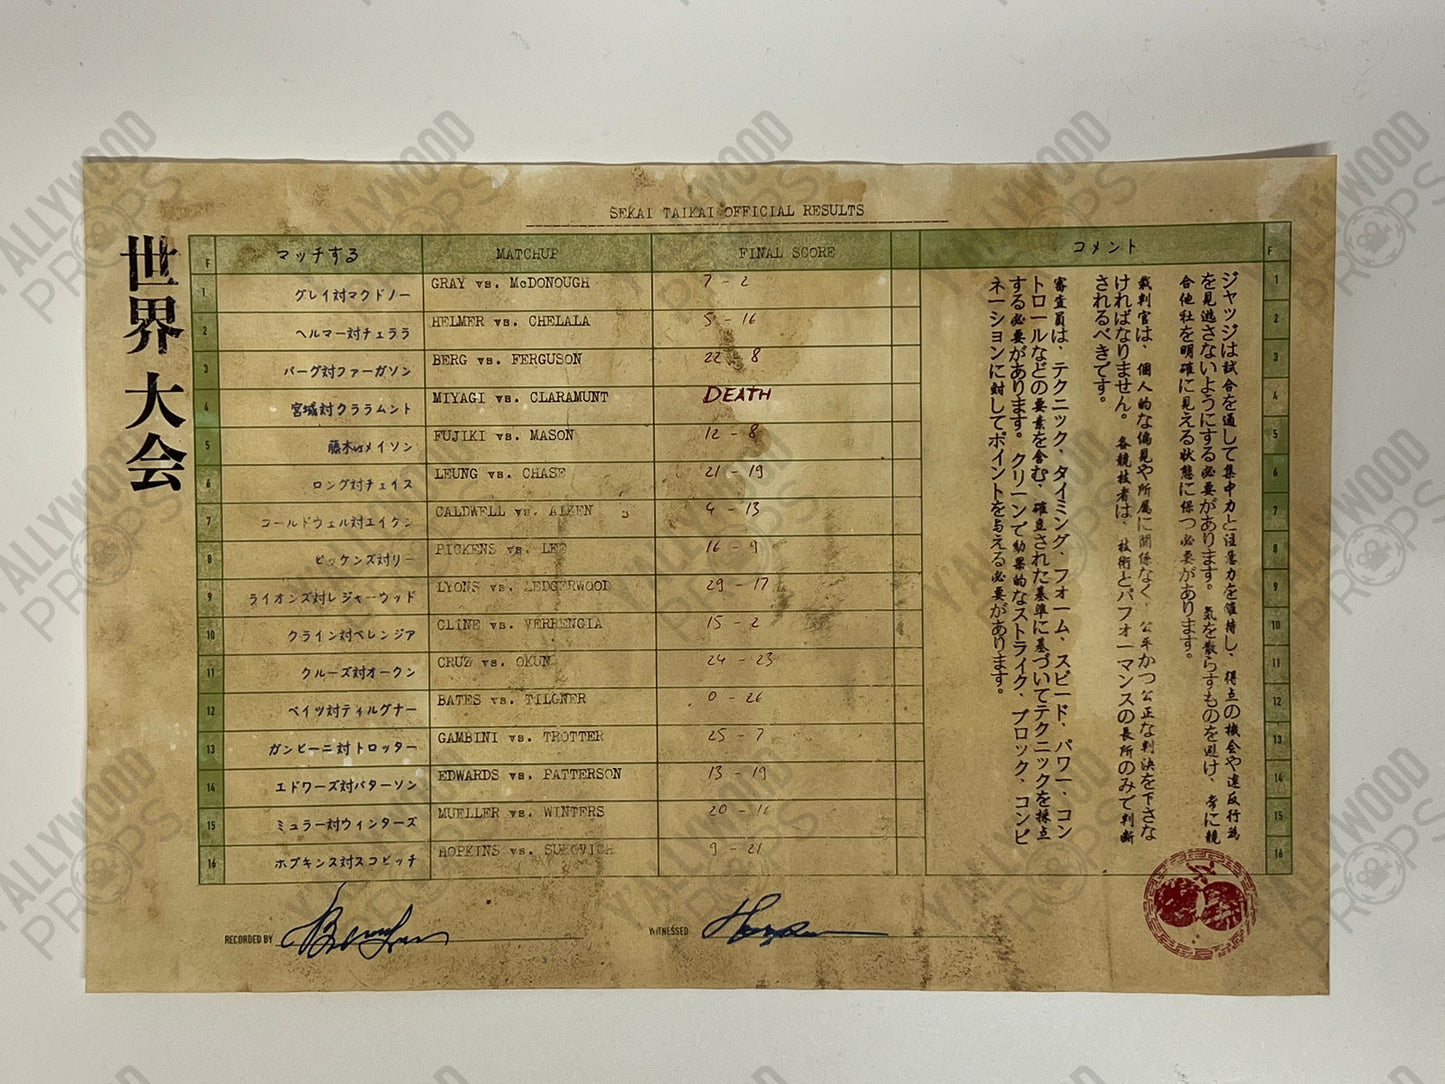 SEKAI TAIKAI OFFICIAL RESULTS
世界大会
F マッチする MATCHUP FINAL SCORE コメント F
1 グレイ対マクドノー GRAY vs. McDONOUGH 7 - 2 1
2 ヘルマー対チェララ HELMER vs. CHELALA 5 - 16 2
3 バーグ対ファーガソン BERG vs. FERGUSON 22 - 8 3
4 宮城対クララムント MIYAGI vs. CLARAMUNT DEATH 4
5 藤木vsメイソン FUJIKI vs. MASON 12 - 8 5
6 ロング対チェイス LEUNG vs. CHASE 21 - 19 6
7 コールドウェル対エイケン CALDWELL vs. AIKEN 4 - 13 7
8 ピッケンズ対リー PICKENS vs. LEE 16 - 9 8
9 ライオンズ対レジャーウッド LYONS vs. LEDGERWOOD 29 - 17 9
10 クライン対ベレンジア CLINE vs. VERRENGIA 15 - 2 10
11 クルーズ対オークン CRUZ vs. OKUN 24 - 23 11
12 ベイツ対ティルグナー BATES vs. TILGNER 0 - 26 12
13 ガンビーニ対トロッター GAMBINI vs. TROTTER 25 - 7 13
14 エドワーズ対パターソン EDWARDS vs. PATTERSON 13 - 19 14
15 ミュラー対ウィンターズ MUELLER vs. WINTERS 20 - 16 15
16 ホプキンス対スコビッチ HOPKINS vs. SUKOVICH 9 - 21 16
ジャッジは試合を通して集中力と注意力を維持し、得点の機会や違反行為
を見逃さないようにする必要があります。気を散らすものを避け、常に競
合他社を明確に見える状態に保つ必要があります。
裁判官は、個人的な偏見や所属に関係なく、公平かつ公正な判決を下さな
ければなりません。各競技者は、技術とパフォーマンスの長所のみで判断
されるべきです。
審査員は、テクニック、タイミング、フォーム、スピード、パワー、コン
トロールなどの要素を含む、確立された基準に基づいてテクニックを採点
する必要があります。クリーンで効果的なストライク、ブロック、コンビ
ネーションに対してポイントを与える必要があります。
RECORDED BY
WITNESSED
Y'ALLYWOOD PROPS